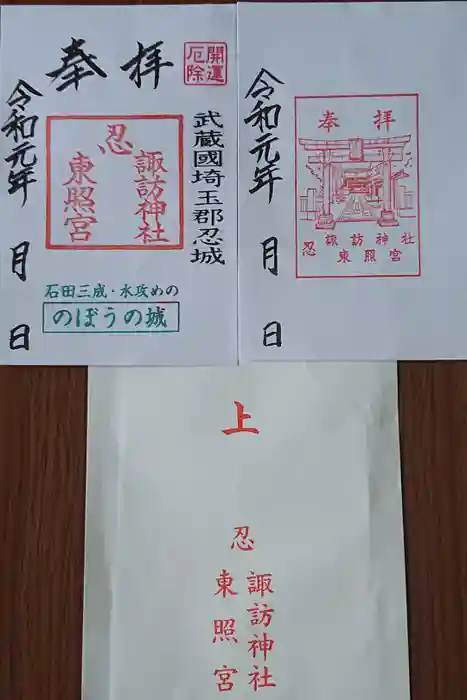 奉拝
開運
厄除
武蔵國埼玉郡忍城
忍
諏訪神社
東照宮
令和元年 月 日
石田三成・水攻めの
のぼうの城
奉拝
忍 諏訪神社
東照宮
令和元年 月 日
上
忍
諏訪神社
東照宮